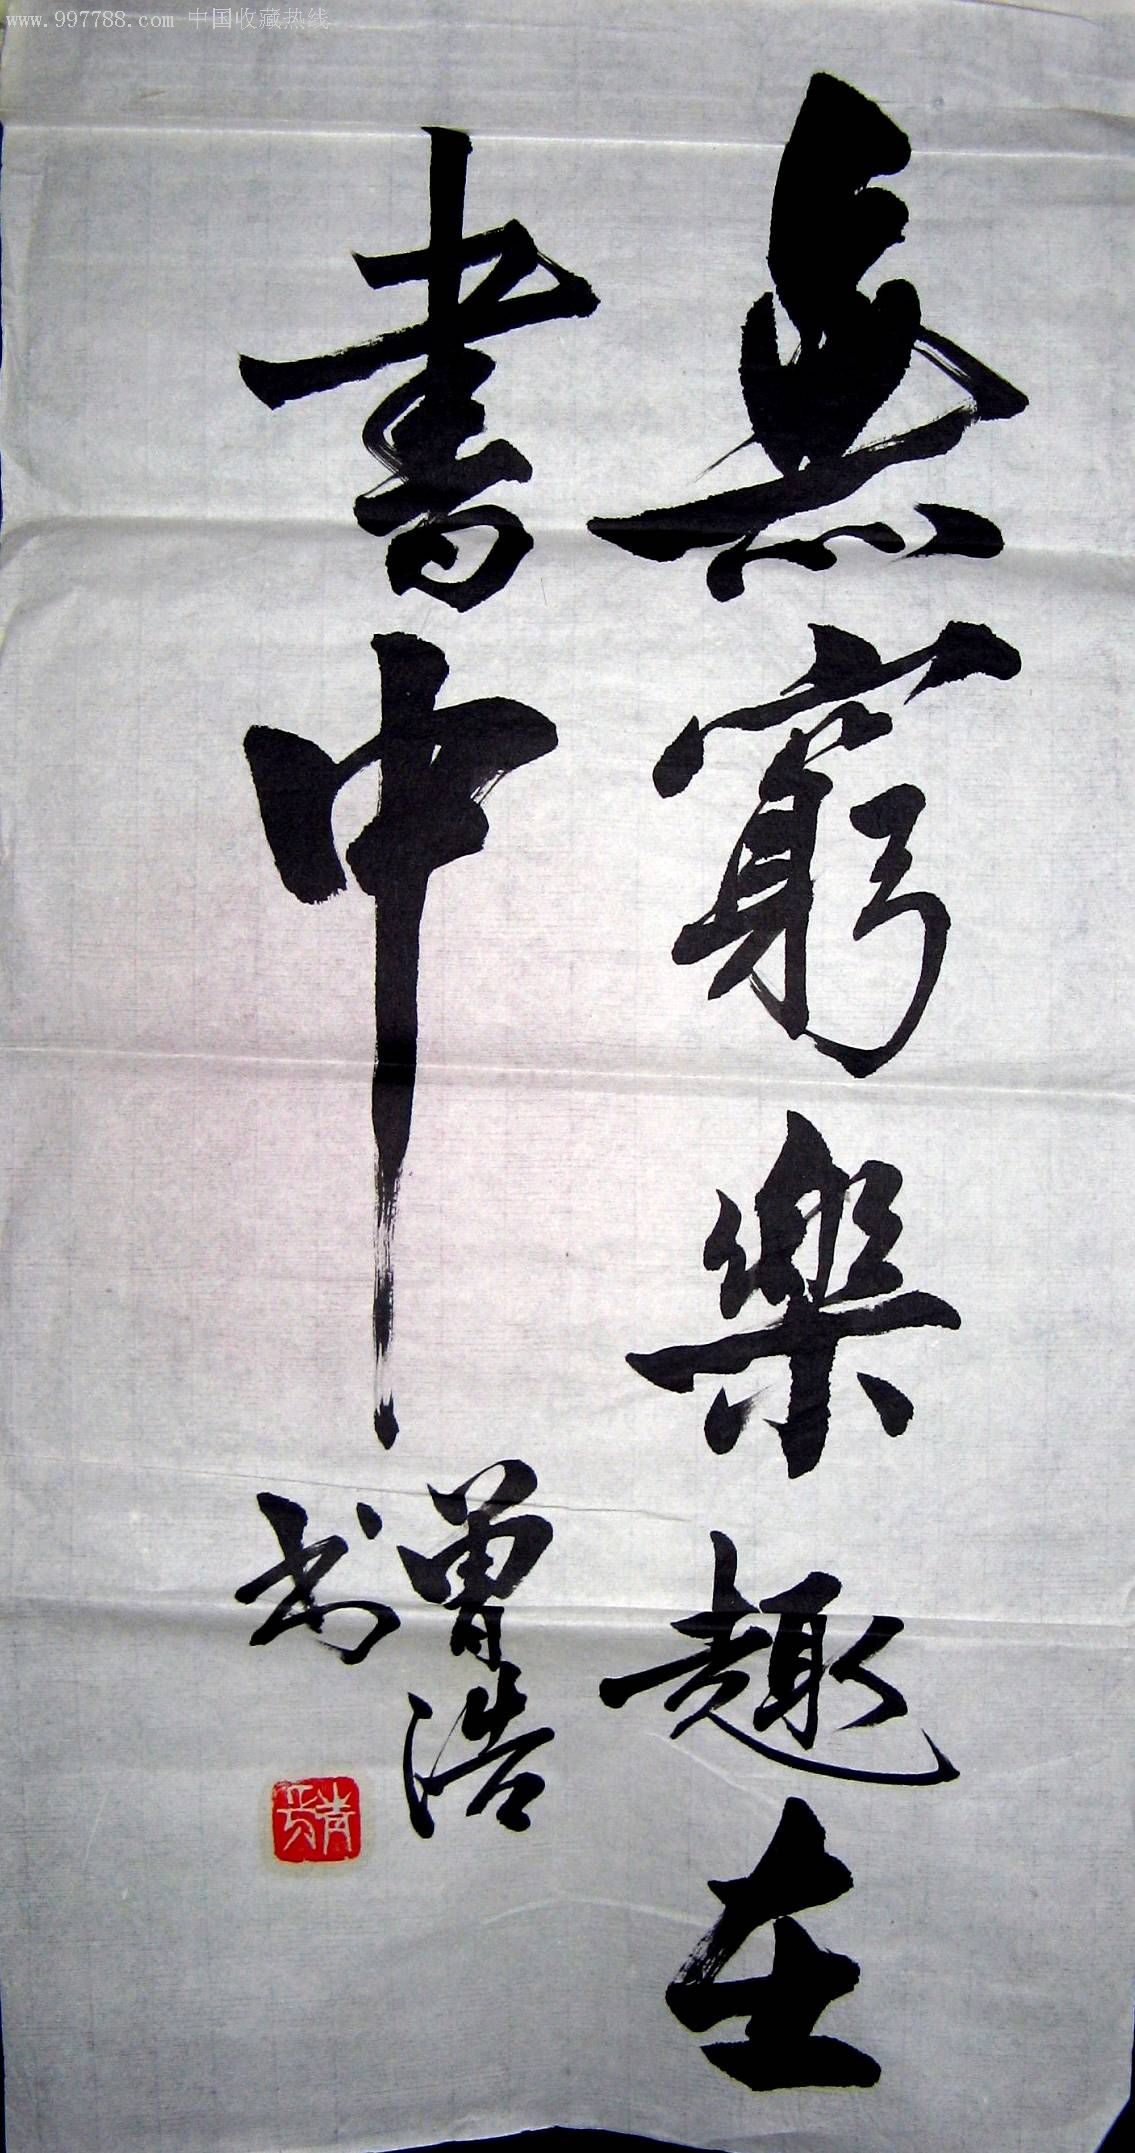 www.997788.com 中国收藏热线
無窮樂趣在
書中
曾浩
书